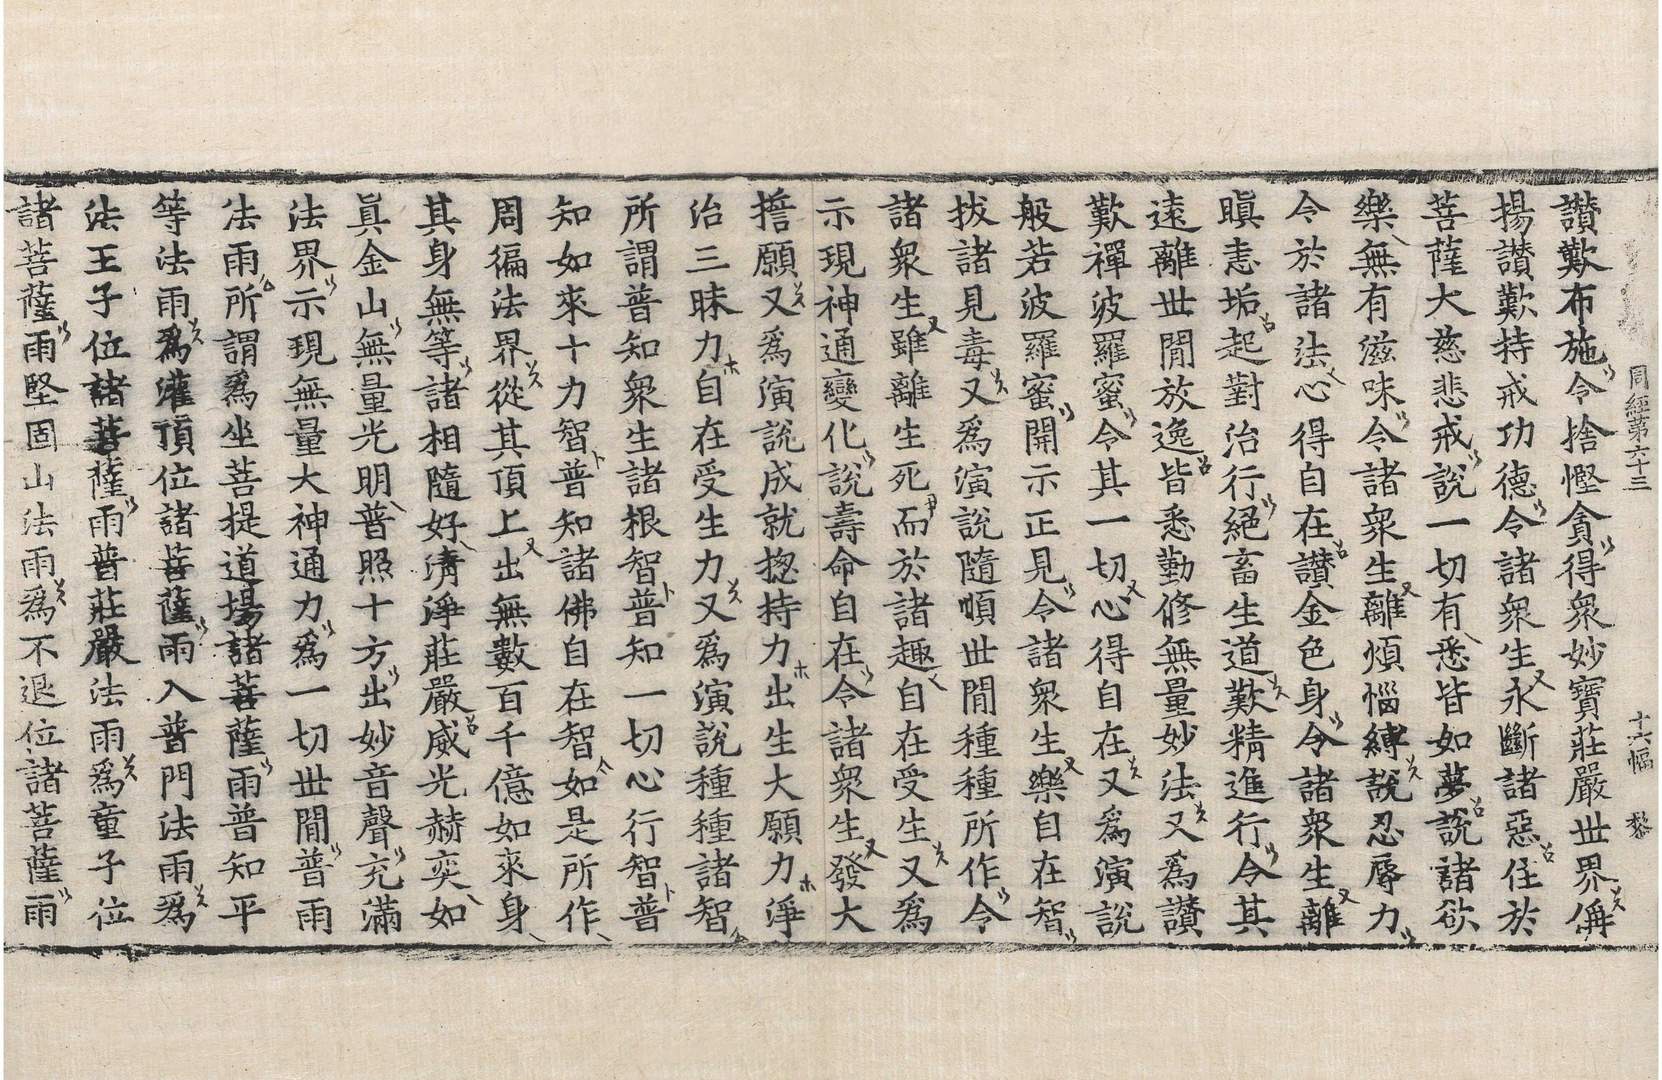 周經第六十三 十六幅 黎
讃歎布施令捨慳貪得衆妙寶莊嚴世界偁
揚讃歎持戒功德令諸衆生永斷諸惡住於
菩薩大慈悲戒說一切有悉皆如夢說諸欲
樂無有滋味令諸衆生離煩惱縛說忍辱力
令於諸法心得自在讃金色身令諸衆生離
瞋恚垢起對治行絕畜生道歎精進行令其
遠離世閒放逸皆悉勤修無量妙法又爲讃
歎禪波羅蜜令其一切心得自在又爲演說
般若波羅蜜開示正見令諸衆生樂自在智
拔諸見毒又爲演說隨順世閒種種所作令
諸衆生雖離生死而於諸趣自在受生又爲
示現神通變化說壽命自在令諸衆生發大
誓願又爲演說成就揔持力出生大願力淨
治三昧力自在受生力又爲演說種種諸智
所謂普知衆生諸根智普知一切心行智普
知如來十力智普知諸佛自在智如是所作
周徧法界從其頂上出無數百千億如來身
其身無等諸相隨好淸淨莊嚴威光赫奕如
眞金山無量光明普照十方出妙音聲充滿
法界示現無量大神通力爲一切世閒普雨
法雨所謂爲坐菩提道場諸菩薩雨普知平
等法雨爲灌頂位諸菩薩雨入普門法雨爲
法王子位諸菩薩雨普莊嚴法雨爲童子位
諸菩薩雨堅固山法雨爲不退位諸菩薩雨